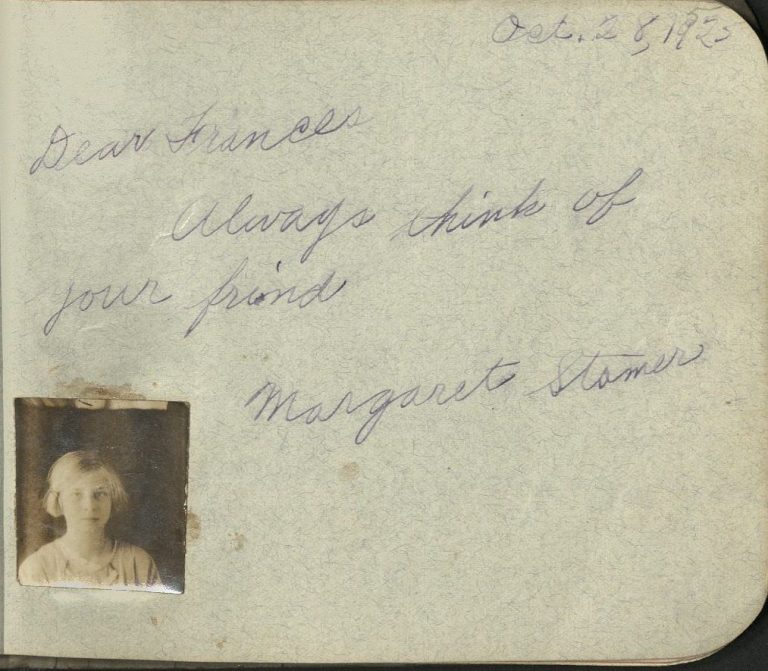 Oct. 28, 1925
Dear Frances
Always think of
your frind
Margaret Stomer